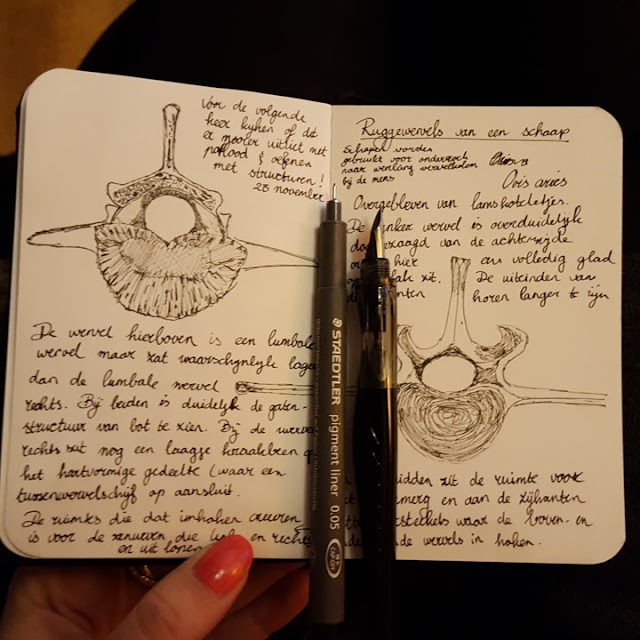 Vóór de volgende
keer kijken of dit
er mooier uitziet met
potlood & oefenen
met structuren!
26 november
De wervel hierboven is een lumbale
wervel maar zat waarschijnlijk lager
dan de lumbale wervel
rechts. Bij beiden is duidelijk de gaten-
structuur van bot te zien. Bij de wervel
rechts zat nog een laagje kraakbeen op
het hartvormige gedeelte (waar een
tussenwervelschijf op aansluit.
De ruimtes die dat inhaken creëren
is voor de zenuwen die links en rechts
en uit lopen
Ruggewervels van een schaap
Schapen worden
gebruikt voor onderzoek
naar werking wervelkolom
bij de mens
Ovis aries
Overgebleven van lamskoteletjes.
De linker wervel is overduidelijk
doorgezaagd van de achterzijde
hier een volledig glad
vlak zit. De uiteinden van
horen langer te zijn
midden zit de ruimte voor
merg en aan de zijkanten
steeksels waar de boven- en
de wervels in haken.
STAEDTLER pigment liner 0.05